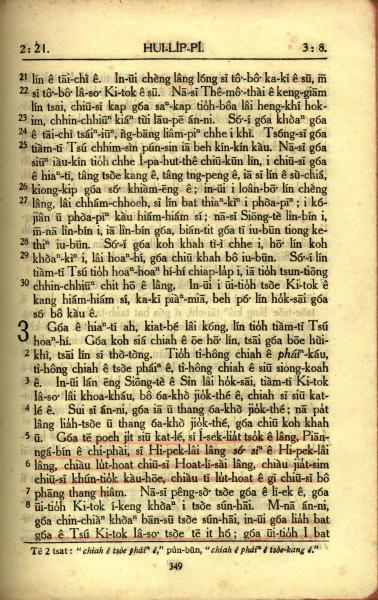 2:21. HUI-LI̍P-PÍ. 3:8.
21 lín ê tāi-chì ê. In-ūi chèng lâng lóng sī tô͘-bô͘ ka-kī ê sū, m̄
22 sī tô͘-bô͘ Iâ-so͘ Ki-tok ê sū. Nā-sī Thê-mô-thài ê keng-giām
lín tsai, chiū-sī kap góa saⁿ-kap tio̍h-bôa lâi heng-khí hok-
23 im, chhin-chhiūⁿ kiáⁿ tùi lāu-pē án-ni. Só͘-í góa khòaⁿ góa
24 ê tāi-chì tsáiⁿ-iūⁿ, ǹg-bāng liâm-piⁿ chhe i khì. Tsóng-sī góa
25 tiàm-tī Tsú chhim-sìn pún-sin iā beh kín-kín kàu. Nā-sī góa
siūⁿ iàu-kín tio̍h chhe Í-pa-hut-thê chiū-kūn lín, i chiū-sī góa
ê hiaⁿ-tī, tâng tsòe kang ê, tâng tng-peng ê, iā sī lín ê sù-chiá,
26 kiong-kip góa só͘ khiàm-ēng ê; in-ūi i loân-bō͘ lín chèng
27 lâng, lâi chhám-chhoeh, sī lín bat thiaⁿ-kìⁿ i phòa-pīⁿ; i kó-
jiân ū phòa-pīⁿ kàu hiám-hiám sí; nā-sī Siōng-tè lîn-bín i,
m̄-nā lîn-bín i, iā lîn-bín góa, bián-tit góa tī iu-būn tiong ke-
28 thiⁿ iu-būn. Só͘-í góa koh khah tì-ì chhe i, hō͘ lín koh
29 khòaⁿ-kìⁿ i, lâi hoaⁿ-hí, góa chiū khah bô iu-būn. Só͘-í lín
tiàm-tī Tsú tio̍h hoaⁿ-hoaⁿ hí-hí chiap-la̍p i, iā tio̍h tsun-tiōng
30 chhin-chhiūⁿ chit hō ê lâng. In-ūi i ūi-tio̍h tsòe Ki-tok ê
kang hiám-hiám sí, ka-kī piàⁿ-miā, beh pó͘ lín ho̍k-sāi góa
só͘ bô kàu ê.
3 Góa ê hiaⁿ-tī ah, kiat-bé lâi kóng, lín tio̍h tiàm-tī Tsú
hoaⁿ-hí. Góa koh siá chiah ê ōe hō͘ lín, tsāi góa bōe húi-
2 khì, tsāi lín sī thò-tòng. Tio̍h tî-hông chiah ê pháiⁿ-káu,
tî-hông chiah ê tsòe pháiⁿ ê, tî-hông chiah ê siū siong-koah
3 ê. In-ūi lán ēng Siōng-tè ê Sîn lâi ho̍k-sāi, tiàm-tī Ki-tok
Iâ-so͘ lâi khoa-kháu, bô óa-khò jio̍k-thé ê, chiah sī siū kat-
4 lé ê. Sui sī án-ni, góa iā ū thang óa-khò jio̍k-thé; nā pa̍t
lâng lia̍h-tsòe ū thang óa-khò jio̍k-thé, góa chiū koh khah
5 ū. Góa tē poeh ji̍t siū kat-lé, sī Í-sek-lia̍t tso̍k ê lâng, Piān-
ngá-bín ê chi-phài, sī Hi-pek-lâi lâng só͘ siⁿ ê Hi-pek-lâi
6 lâng, chiàu lu̍t-hoat chiū-sī Hoat-lī-sài lâng, chiàu jia̍t-sim
chiū-sī khún-tio̍k kàu-hōe, chiàu tī lu̍t-hoat ê gī chiū-sī bô
7 phāng thang hiâm. Nā-sī pêng-sò͘ tsòe góa ê lī-ek ê, góa
8 ūi-tio̍h Ki-tok í-keng khòaⁿ i tsòe sún-hāi. M̄-nā án-ni,
góa chin-chiàⁿ khòaⁿ bān-sū tsòe sún-hāi, in-ūi góa lia̍h bat
góa ê Tsú Ki-tok Iâ-so͘ tsòe tē it hó; góa ūi-tio̍h I bat
Tē 2 tsat: “chiah ê tsòe pháiⁿ ê,” pún-bûn, “chiah ê pháiⁿ ê tsòe-kang ê.”
349